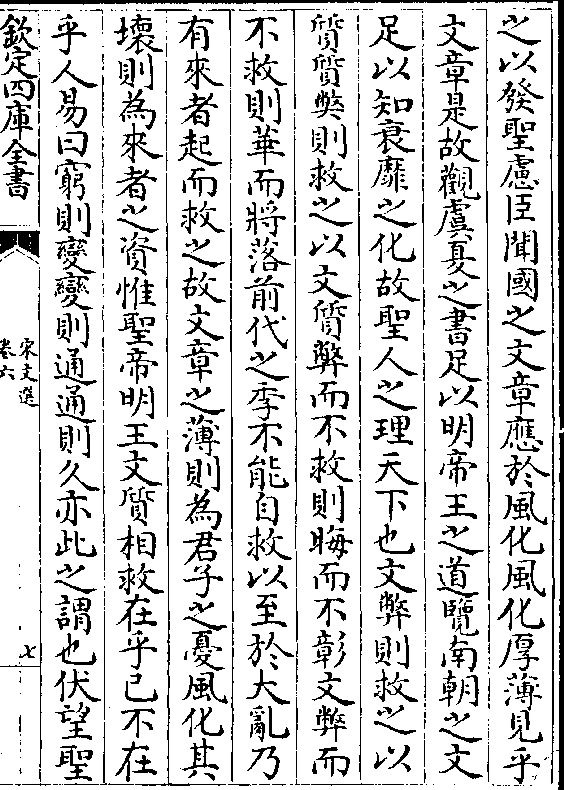 之以發聖慮臣聞國之文章應於風化風化厚薄見乎
文章是故觀虞夏之書足以明帝王之道覽南朝之文
足以知衰靡之化故聖人之理天下也文弊則救之以
質質弊則救之以文質弊而不救則晦而不彰文弊而
不救則華而將落前代之季不能自救以至於大亂乃
有來者起而救之故文章之薄則為君子之憂風化其
壞則為來者之資惟聖帝明王文質相救在乎己不在
乎人易曰窮則變變則通通則久亦此之謂也伏望聖
欽定四庫全書
宋文選
卷六
七